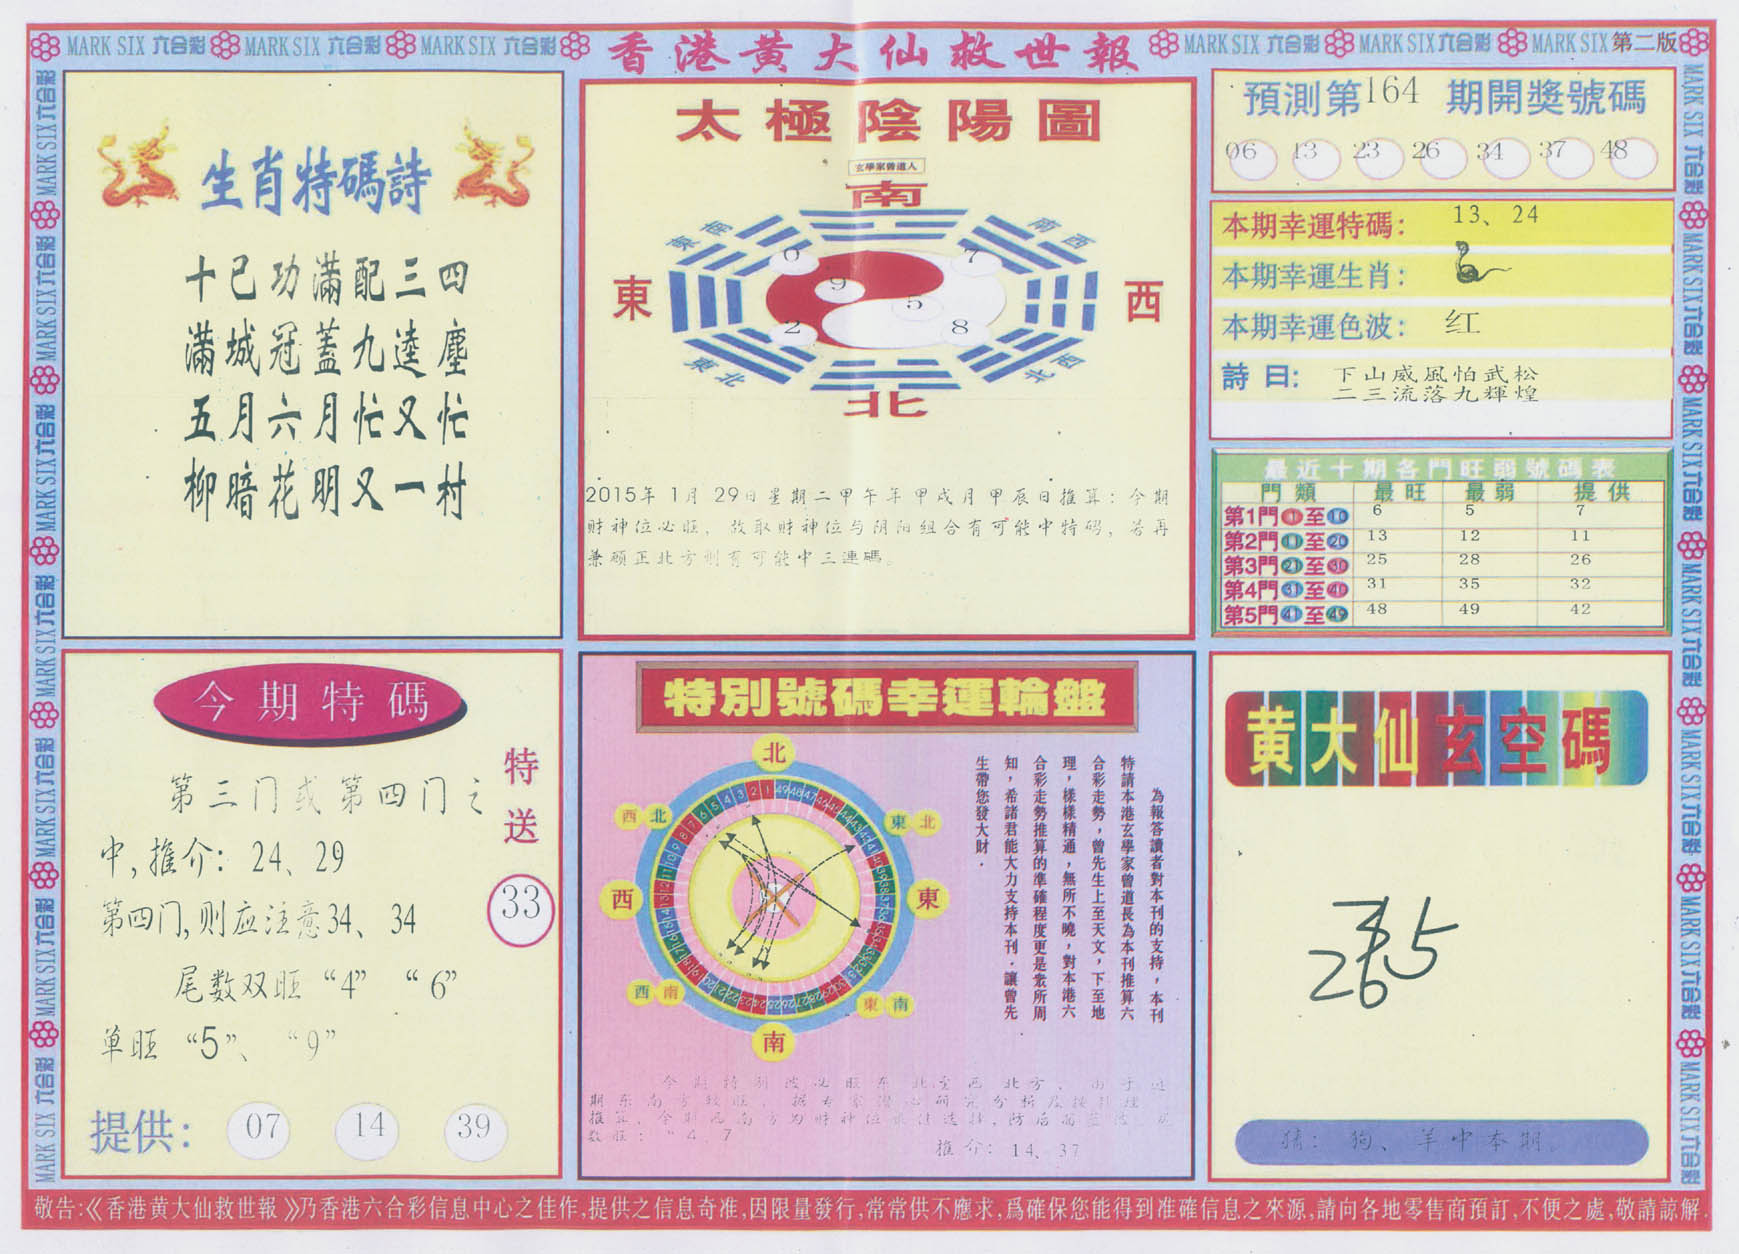 MARK SIX 六合彩 MARK SIX 六合彩 MARK SIX 六合彩 香港黃大仙救世報 MARK SIX 六合彩 MARK SIX 六合彩 MARK SIX 第二版
生肖特碼詩
十已功滿配三四
滿城冠蓋九逵塵
五月六月忙又忙
柳暗花明又一村
太極陰陽圖
玄學家曾道人
南
東南 南西
東 西
0 7
9 5
2 8
東北 北西
北
2015年1月29日星期二甲午年甲戌月甲辰日推算：今期
财神位必旺，故取财神位与阴阳组合有可能中特码，若再
兼顾正北方则有可能中三連碼。
預測第164期開獎號碼
06 13 23 26 34 37 48
本期幸運特碼： 13、24
本期幸運生肖：
本期幸運色波： 红
詩曰： 下山威風怕武松
二三流落九輝煌
最近十期各門旺弱號碼表
門類 最旺 最弱 提供
第1門1至10 6 5 7
第2門11至20 13 12 11
第3門21至30 25 28 26
第4門31至40 31 35 32
第5門41至49 48 49 42
今期特碼
第三门或第四门之
中,推介：24、29
第四门,则应注意34、34
尾数双旺“4”“6”
单旺“5”、“9”
特送
33
提供： 07 14 39
特別號碼幸運輪盤
北
西北 東北
西 東
西南 東南
南
為報答讀者對本刊的支持，本刊
特請本港玄學家曾道長為本刊推算六
合彩走勢，曾先生上至天文，下至地
理，樣樣精通，無所不曉，對本港六
合彩走勢推算的準確程度更是衆所周
知，希諸君能大力支持本刊．讓曾先
生帶您發大財．
今期特别波必旺东北至西北方，由于近
期东南方较旺，据专家潜心研究分析及按推理
推算，今期西南方为财神位最佳选择,防后
数旺：“4、7
推介：14、37
黄大仙玄空碼
猜：狗、羊中本期。
敬告:《香港黄大仙救世報》乃香港六合彩信息中心之佳作,提供之信息奇准,因限量發行,常常供不應求,爲確保您能得到准確信息之來源,請向各地零售商預訂,不便之處,敬請諒解.